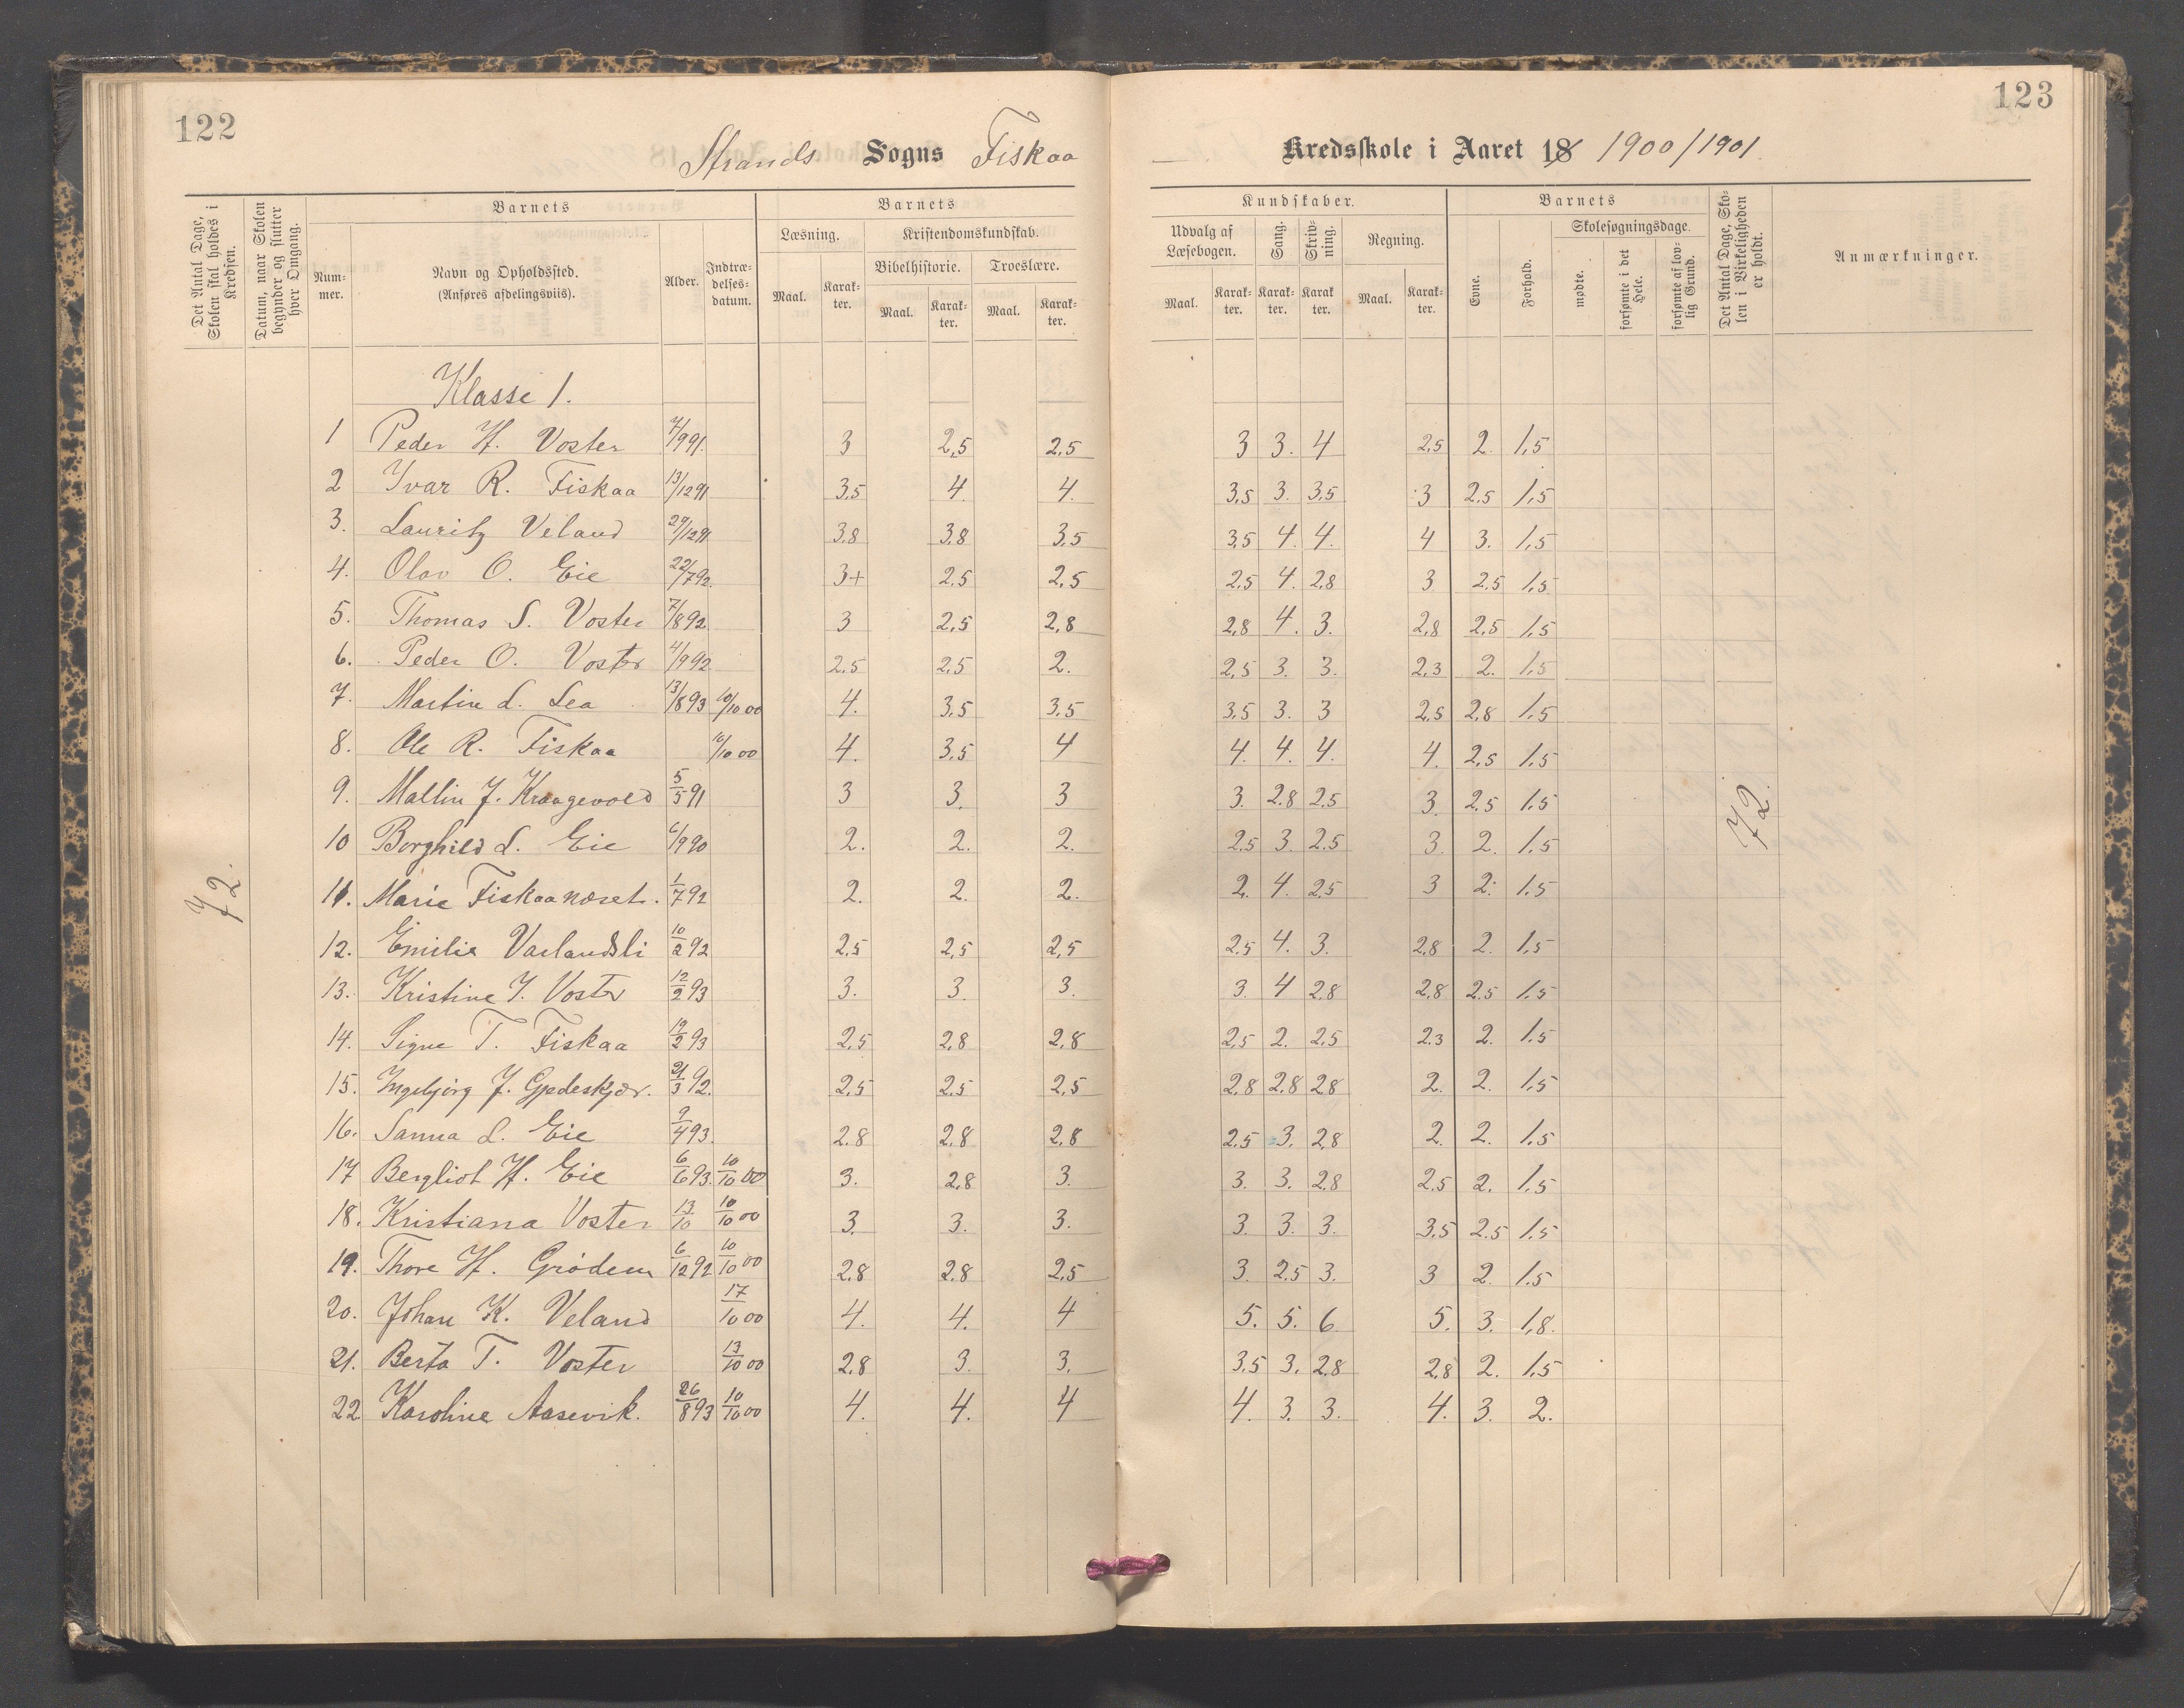 122
123
Strands Sogns Fiskaa Kredsskole i Aaret 18 1900/1901.
Det Antal Dage, Skolen skal holdes i Kredsen.
Datum, naar Skolen begynder og slutter hver Omgang.
Barnets
Num-mer.
Navn og Opholdssted.
(Anføres afdelingsviis).
Alder.
Indtræ-delses-datum.
Barnets
Læsning.
Maal.
Karak-ter.
Kristendomskundskab.
Bibelhistorie.
Maal.
Karak-ter.
Troeslære.
Maal.
Karak-ter.
Kundskaber.
Udvalg af Læsebogen.
Maal.
Karak-ter.
Sang.
Karak-ter.
Skriv-ning.
Karak ter.
Regning.
Maal.
Karak-ter.
Barnets
Evne.
Forhold.
Skolesøgningsdage.
mødte.
forsømte i det Hele.
forsømte af lov-lig Grund.
Det Antal Dage, Sko-len i Virkeligheden er holdt.
Anmærkninger.
Klasse 1.
1 Peder H. Voster 7/9 91. 3 2,5 2,5 3 3. 4 2,5 2. 1,5
2 Ivar R. Fiskaa 13/12 91 3,5 4. 4. 3,5 3. 3,5 3 2,5 1,5
3. Lauritz Veland 29/12 91 3,8 3,8 3,5 3,5 4. 4. 4 3. 1,5
4. Olav O. Eie 22/7 92. 3+ 2,5 2,5 2,5 4. 2,8 3 2,5 1,5
5. Thomas S. Voster 7/8 92. 3 2,5 2,8 2,8 4. 3. 2,8 2,5 1,5
6. Peder O. Voster 4/9 92 2,5 2,5 2. 2,5 3. 3. 2,3 2. 1,5
7. Martin L. Lea 13/8 93 10/10 00 4. 3,5 3,5 3,5 3. 3 2,5 2,8 1,5
8. Ole R. Fiskaa 10/10 00 4. 3,5 4 4. 4. 4. 4. 2,5 1,5
9. Mallin J. Kraagevold 5/5 91 3 3. 3 3. 2,8 2,5 3. 2,5 1,5
10 Borghild L. Eie 6/9 90 2. 2. 2. 2,5 3. 2,5 3. 2. 1,5
11. Marie Fiskaanæset. 1/7 92 2. 2. 2. 2. 4. 2,5 3 2. 1,5
12. Emilie Varlandsli 10/2 92 2,5 2,5 2,5 2,5 4. 3. 2,8 2. 1,5
13. Kristine J. Voster 12/2 93 3. 3. 3. 3. 4 2,8 2,8 2,5 1,5
14. Signe T. Fiskaa 12/2 93 2,5 2,8 2,8 2,5 2. 2,5 2,3 2. 1,5
15. Ingebjørg J. Gjedeskjær. 21/3 92. 2,5 2,5 2,5 2,8 2,8 2,8 2. 2. 1,5
16. Sanna L. Eie 9/4 93. 2,8 2,8 2,8 2,5 3. 2,8 2. 2. 1,5
17 Bergliot H. Eie 6/6 93. 10/10 00 3. 2,8 3. 3. 3. 2,8 2,5 2. 1,5
18. Kristiana Voster 13/10 10/10 00 3. 3. 3. 3. 3. 3. 3,5 2,5 1,5
19. Thore H. Grødem 6/12 92 10/10 00 2,8 2,8 2,5 3. 2,5 3. 3 2. 1,5
20. Johan K. Veland 17/10 00 4. 4. 4 5. 5. 6. 5. 3. 1,8.
21. Berta T. Voster 13/10 00 2,8 3. 3. 3,5 3. 2,8 2,8 2. 1,5
22 Karoline Aasevik. 26/8 93 10/10 00 4. 4. 4 4. 3. 3. 4. 3. 2.
72.
72.